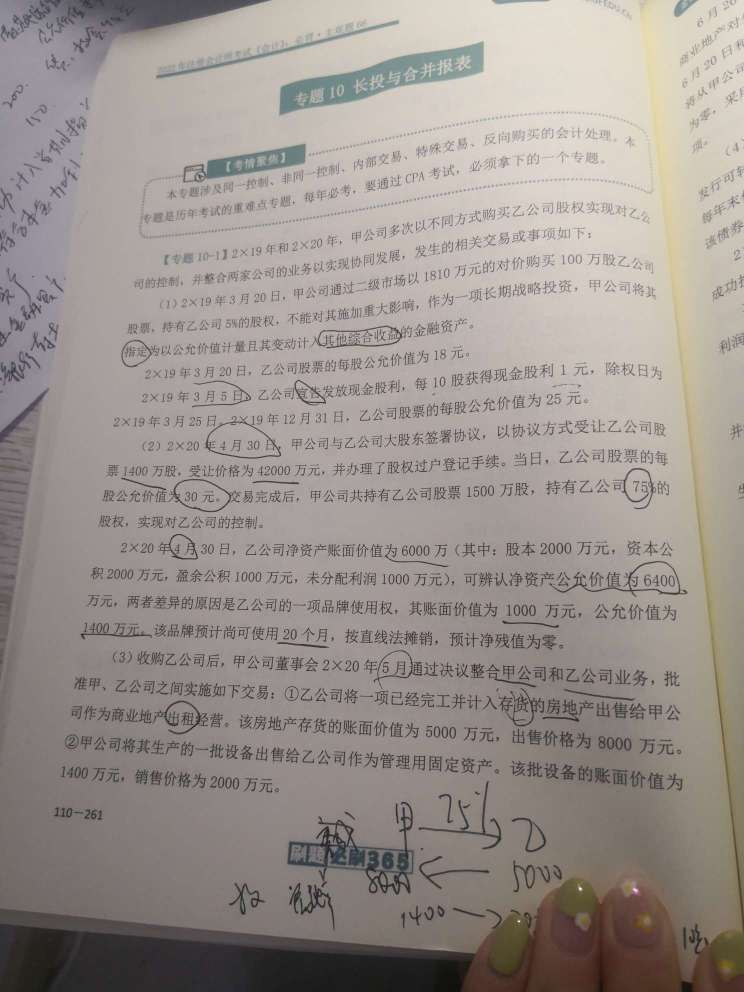 2022年注册会计师考试《会计》
专题 10 长投与合并报表
【考情聚焦】
本专题涉及同一控制、非同一控制、内部交易、特殊交易、反向购买的会计处理。本
专题是历年考试的重难点专题，每年必考，要通过 CPA 考试，必须拿下的一个专题。
【专题 10-1】2×19 年和 2×20 年，甲公司多次以不同方式购买乙公司股权实现对乙公
司的控制，并整合两家公司的业务以实现协同发展，发生的相关交易或事项如下：
（1）2×19 年 3 月 20 日，甲公司通过二级市场以 1810 万元的对价购买 100 万股乙公司
股票，持有乙公司 5%的股权，不能对其施加重大影响，作为一项长期战略投资，甲公司将其
指定为以公允价值计量且其变动计入其他综合收益的金融资产。
2×19 年 3 月 20 日，乙公司股票的每股公允价值为 18 元。
2×19 年 3 月 5 日，乙公司宣告发放现金股利，每 10 股获得现金股利 1 元，除权日为
2×19 年 3 月 25 日。2×19 年 12 月 31 日，乙公司股票的每股公允价值为 25 元。
（2）2×20 年 4 月 30 日，甲公司与乙公司大股东签署协议，以协议方式受让乙公司股
票 1400 万股，受让价格为 42000 万元，并办理了股权过户登记手续。当日，乙公司股票的每
股公允价值为 30 元。交易完成后，甲公司共持有乙公司股票 1500 万股，持有乙公司 75%的
股权，实现对乙公司的控制。
2×20 年 4 月 30 日，乙公司净资产账面价值为 6000 万（其中：股本 2000 万元，资本公
积 2000 万元，盈余公积 1000 万元，未分配利润 1000 万元），可辨认净资产公允价值为 6400
万元，两者差异的原因是乙公司的一项品牌使用权，其账面价值为 1000 万元，公允价值为
1400 万元。该品牌预计尚可使用 20 个月，按直线法摊销，预计净残值为零。
（3）收购乙公司后，甲公司董事会 2×20 年 5 月通过决议整合甲公司和乙公司业务，批
准甲、乙公司之间实施如下交易：①乙公司将一项已经完工并计入存货的房地产出售给甲公
司作为商业地产出租经营。该房地产存货的账面价值为 5000 万元，出售价格为 8000 万元。
②甲公司将其生产的一批设备出售给乙公司作为管理用固定资产。该批设备的账面价值为
1400 万元，销售价格为 2000 万元。
110－261
刷题 必刷365
甲 75% 乙
8000 5000
1400
200.
150
6 月 20
商业地产对
6 月 20 日和
将从甲公司
为零，采
项。
（4）
发行可转
每年末
该债券
2
成功
利润
并